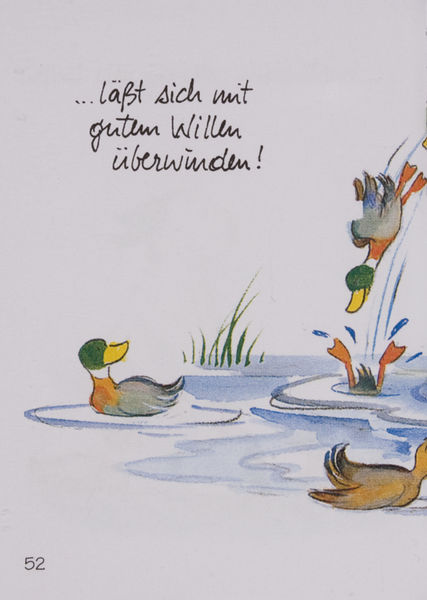 ...läßt sich mit
gutem Willen
überwinden!
52